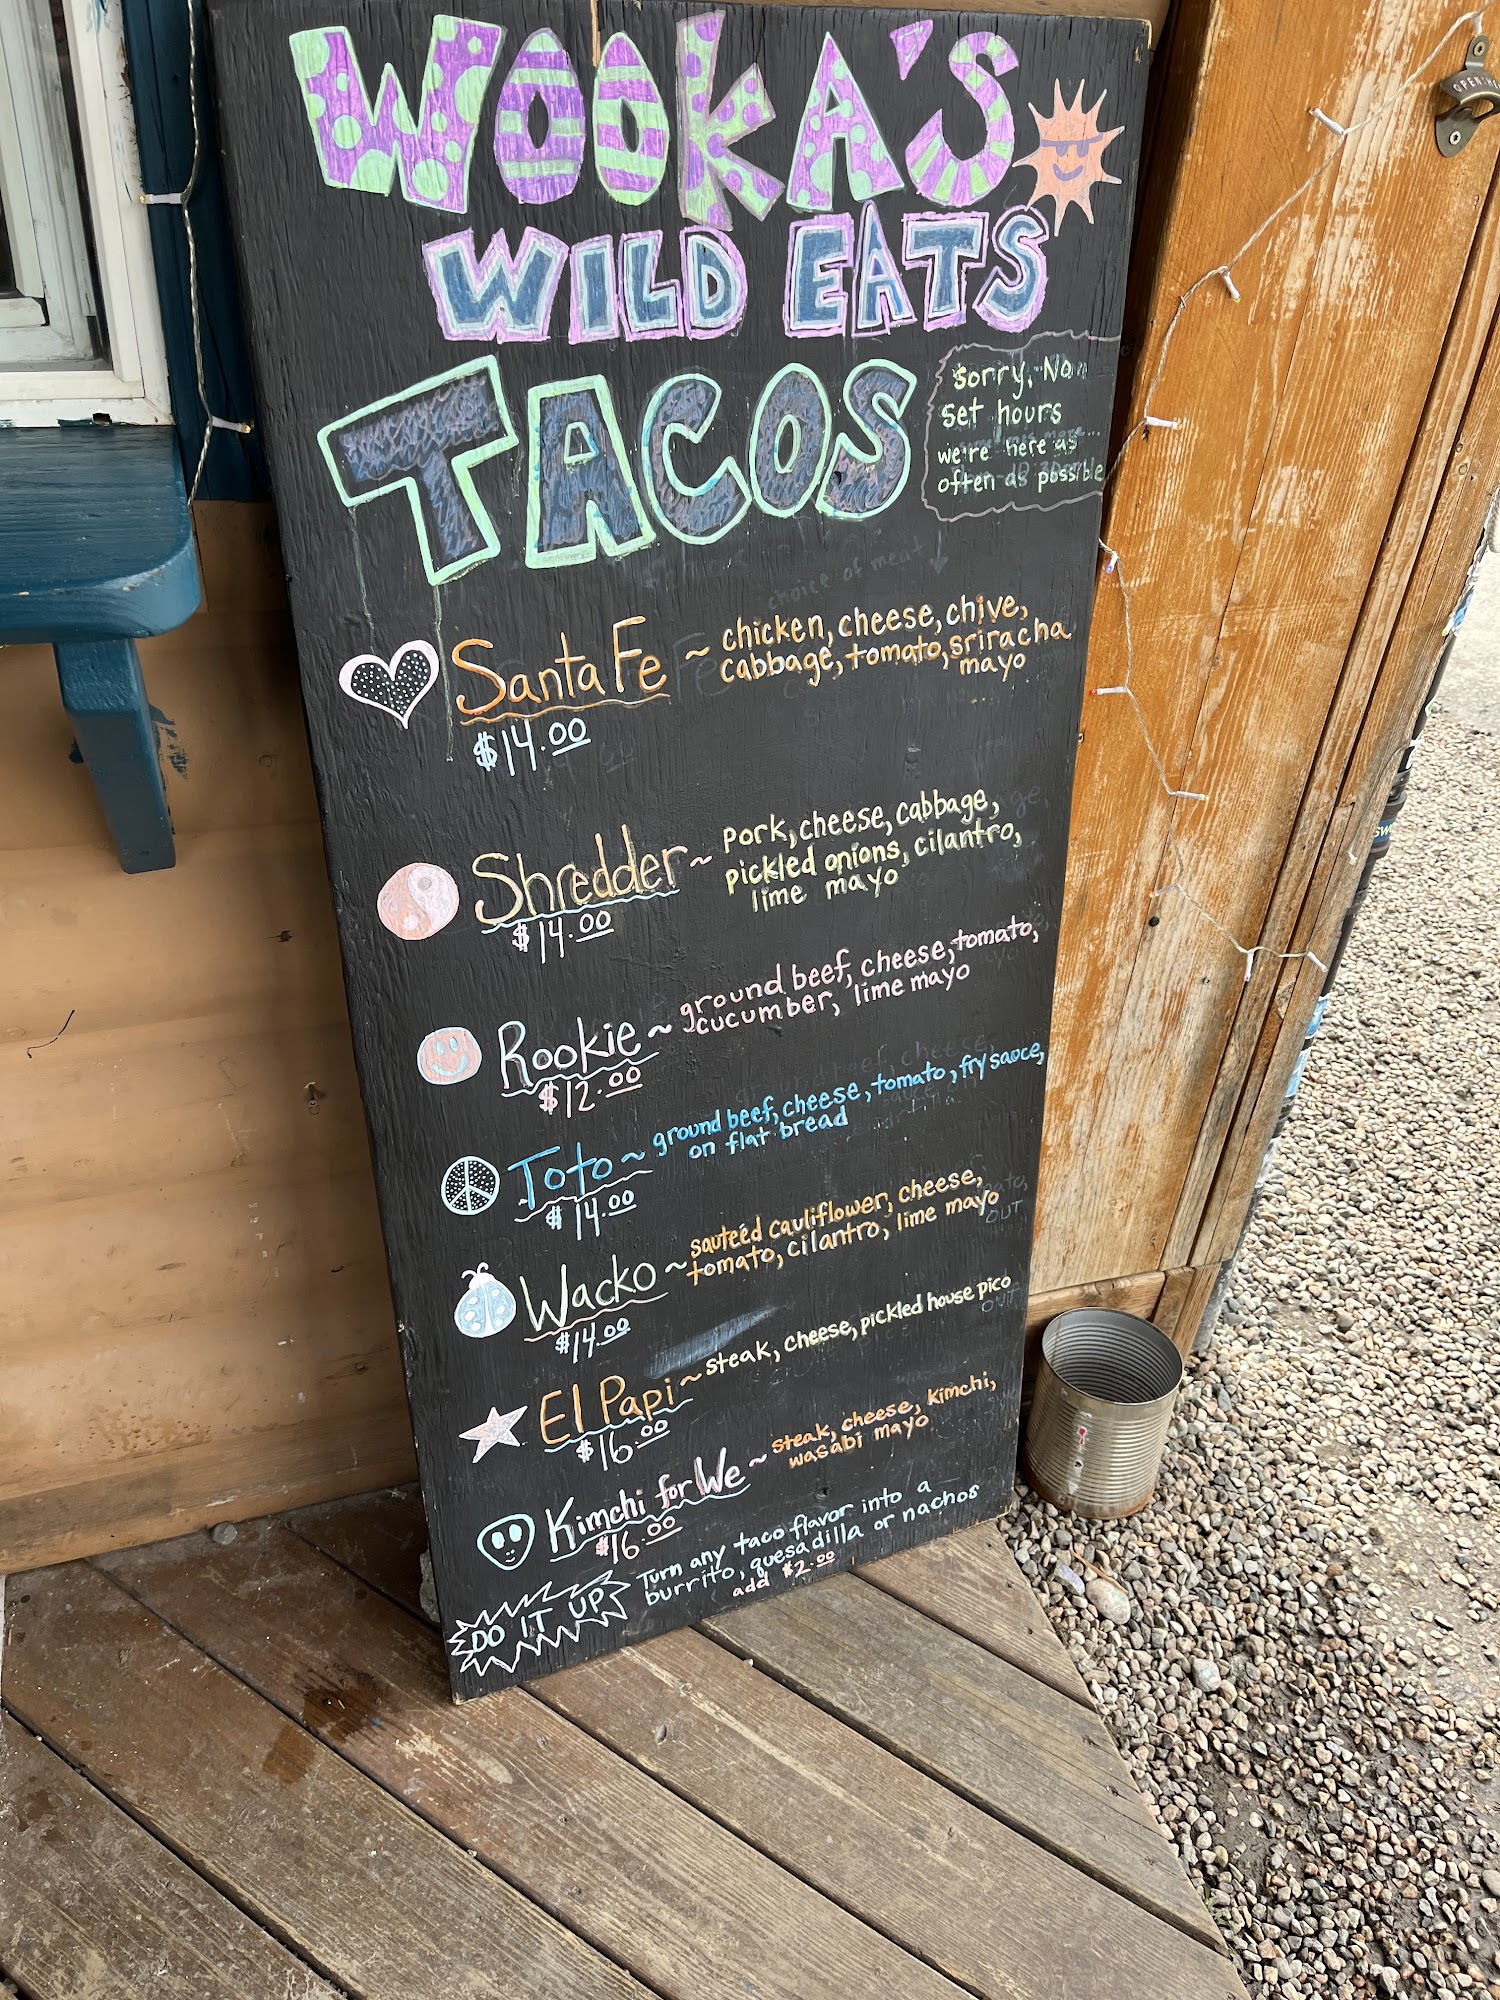 WOOKA'S
WILD EATS
TACOS
Sorry, No
set hours
we're here as
often as possible
choice of meat
Santa Fe ~ chicken, cheese, chive,
cabbage, tomato, sriracha
mayo
$14.00
Shredder ~ pork, cheese, cabbage,
pickled onions, cilantro,
lime mayo
$14.00
Rookie ~ ground beef, cheese, tomato,
cucumber, lime mayo
$12.00
Toto ~ ground beef, cheese, tomato, fry sauce,
on flat bread
$14.00
Wacko ~ sauteéd cauliflower, cheese,
tomato, cilantro, lime mayo
$14.00
El Papi ~ steak, cheese, pickled house pico
$16.00
Kimchi for We ~ steak, cheese, kimchi,
wasabi mayo
$16.00
DO IT UP
Turn any taco flavor into a
burrito, quesadilla or nachos
add $2.00